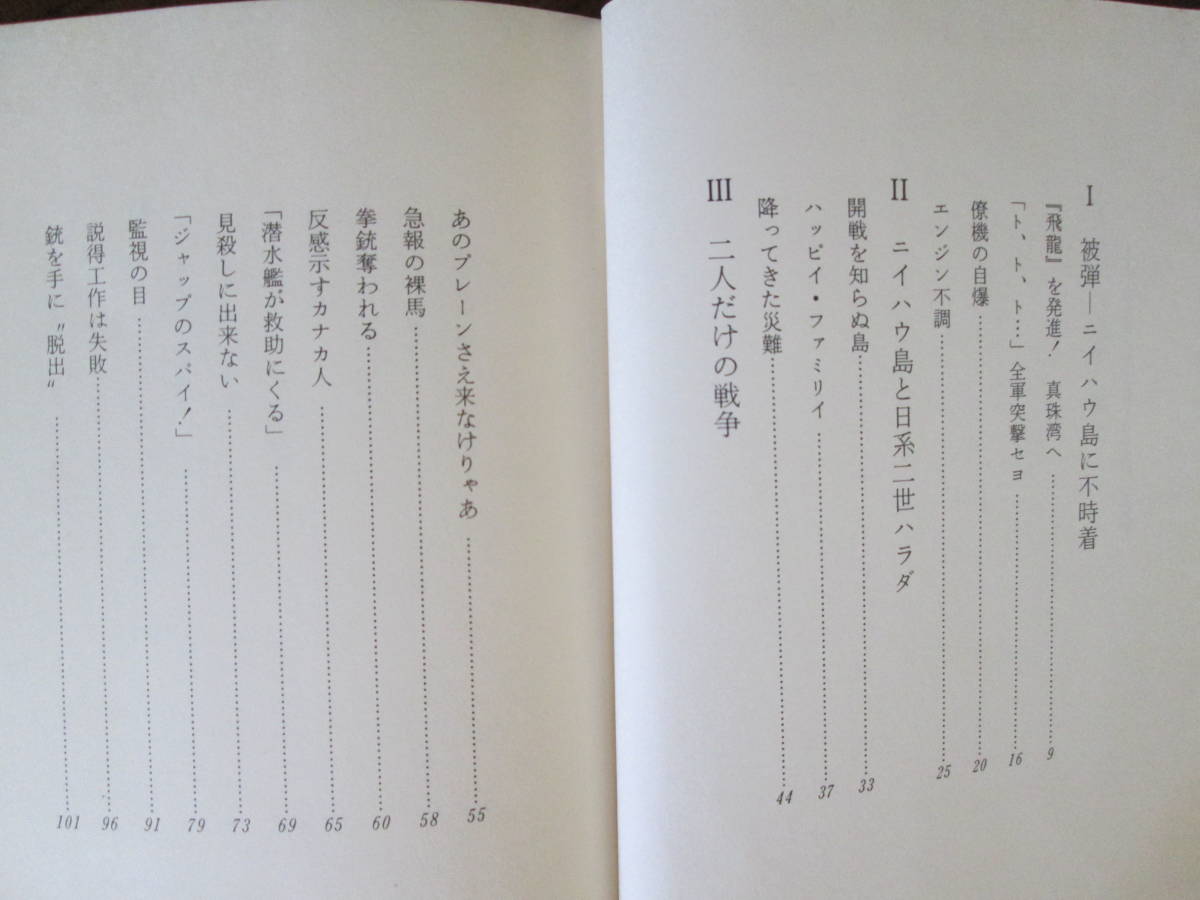 I 被弾―ニイハウ島に不時着
『飛龍』を発進! 真珠湾へ……9
「ト、ト、ト…」全軍突撃セヨ……16
僚機の自爆……20
エンジン不調……25
II ニイハウ島と日系二世ハラダ
開戦を知らぬ島……33
ハッピイ・ファミリイ……37
降ってきた災難……44
III 二人だけの戦争
あのプレーンさえ来なけりゃあ……55
急報の裸馬……58
拳銃奪われる……60
反感示すカナカ人……65
「潜水艦が救助にくる」……69
見殺しに出来ない……73
「ジャップのスパイ!」……79
監視の目……91
説得工作は失敗……96
銃を手に〝脱出〟……101